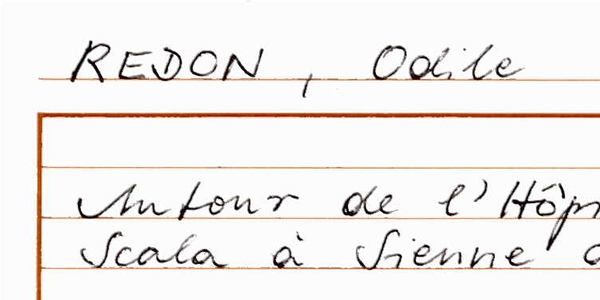 REDON, Odile
Autour de l'Hôp
Scala à Sienne